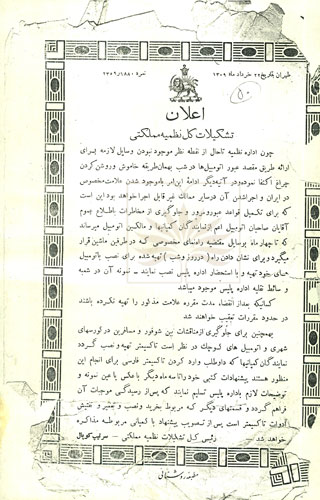 طهران بتاریخ ۲۲ خرداد ماه ۱۳۰۹
نمره ۲۳۵۶/۱۸۸۰
۵۰
اعلان
تشکیلات کل نظمیه مملکتی
چون اداره نظمیه تاحال از نقطه نظر موجود نبودن وسایل لازمه برای
ارائه طریق مقصد عبور اتومبیل‌ها در شب بهمان طریقه خاموش و روشن کردن
چراغ اکتفا نموده و در آتیه دیگر ادامه این امر با موجود شدن علامت مخصوص
در ایران و اجرا شدن آن در سایر ممالک غیر قابل اجرا خواهد بود این است
که برای تکمیل قواعد عبور و مرور و جلوگیری از مخاطرات باطلاع عموم
آقایان صاحبان اتومبیل اعم از نمایندگان کمپانیها و مالکین اتومبیل میرساند
که تا چهار ماه بوسایل مقتضیه راه‌نمای مخصوصی که در طرفین ماشین قرار
میگیرد و برای نشان دادن راه (در روز و شب) تهیه شده برای نصب باتومبیل
های خود تهیه و با استحضار اداره پلیس نصب نمایند ـ نمونه آن در شعبه
وسائط نقلیه اداره پلیس موجود میباشد
کسانیکه بعد از انقضاء مدت مقرره علامت مذکور را تهیه نکرده باشند
در حدود مقررات تعقیب خواهند شد
بهمچنین برای جلوگیری از مناقشات بین شوفور و مسافرین در کورسهای
شهری و اتومبیل های کوچک در نظر است تاکسیمتر تهیه و نصب گردد
نمایندگان کمپانیها که داوطلب وارد کردن تاکسیمتر فارسی برای انجام این
منظور هستند پیشنهادات کتبی خود را تا سه ماه دیگر با عکس یا عین نمونه و
توضیحات لازم باداره پلیس تسلیم نمایند که پس از رسیدگی موجبات آن
فراهم گردد و قسمتهای دیگر که مربوط بخرید و نصب و تعمیر و تفتیش
ادوات تاکسیمتر است پس از تصویب پیشنهاد با کمپانی مربوطه مذاکره
خواهد شد ـ
رئیس کل تشکیلات نظمیه مملکتی ـ سرتیپ کوپال
مطبعه روشنائی